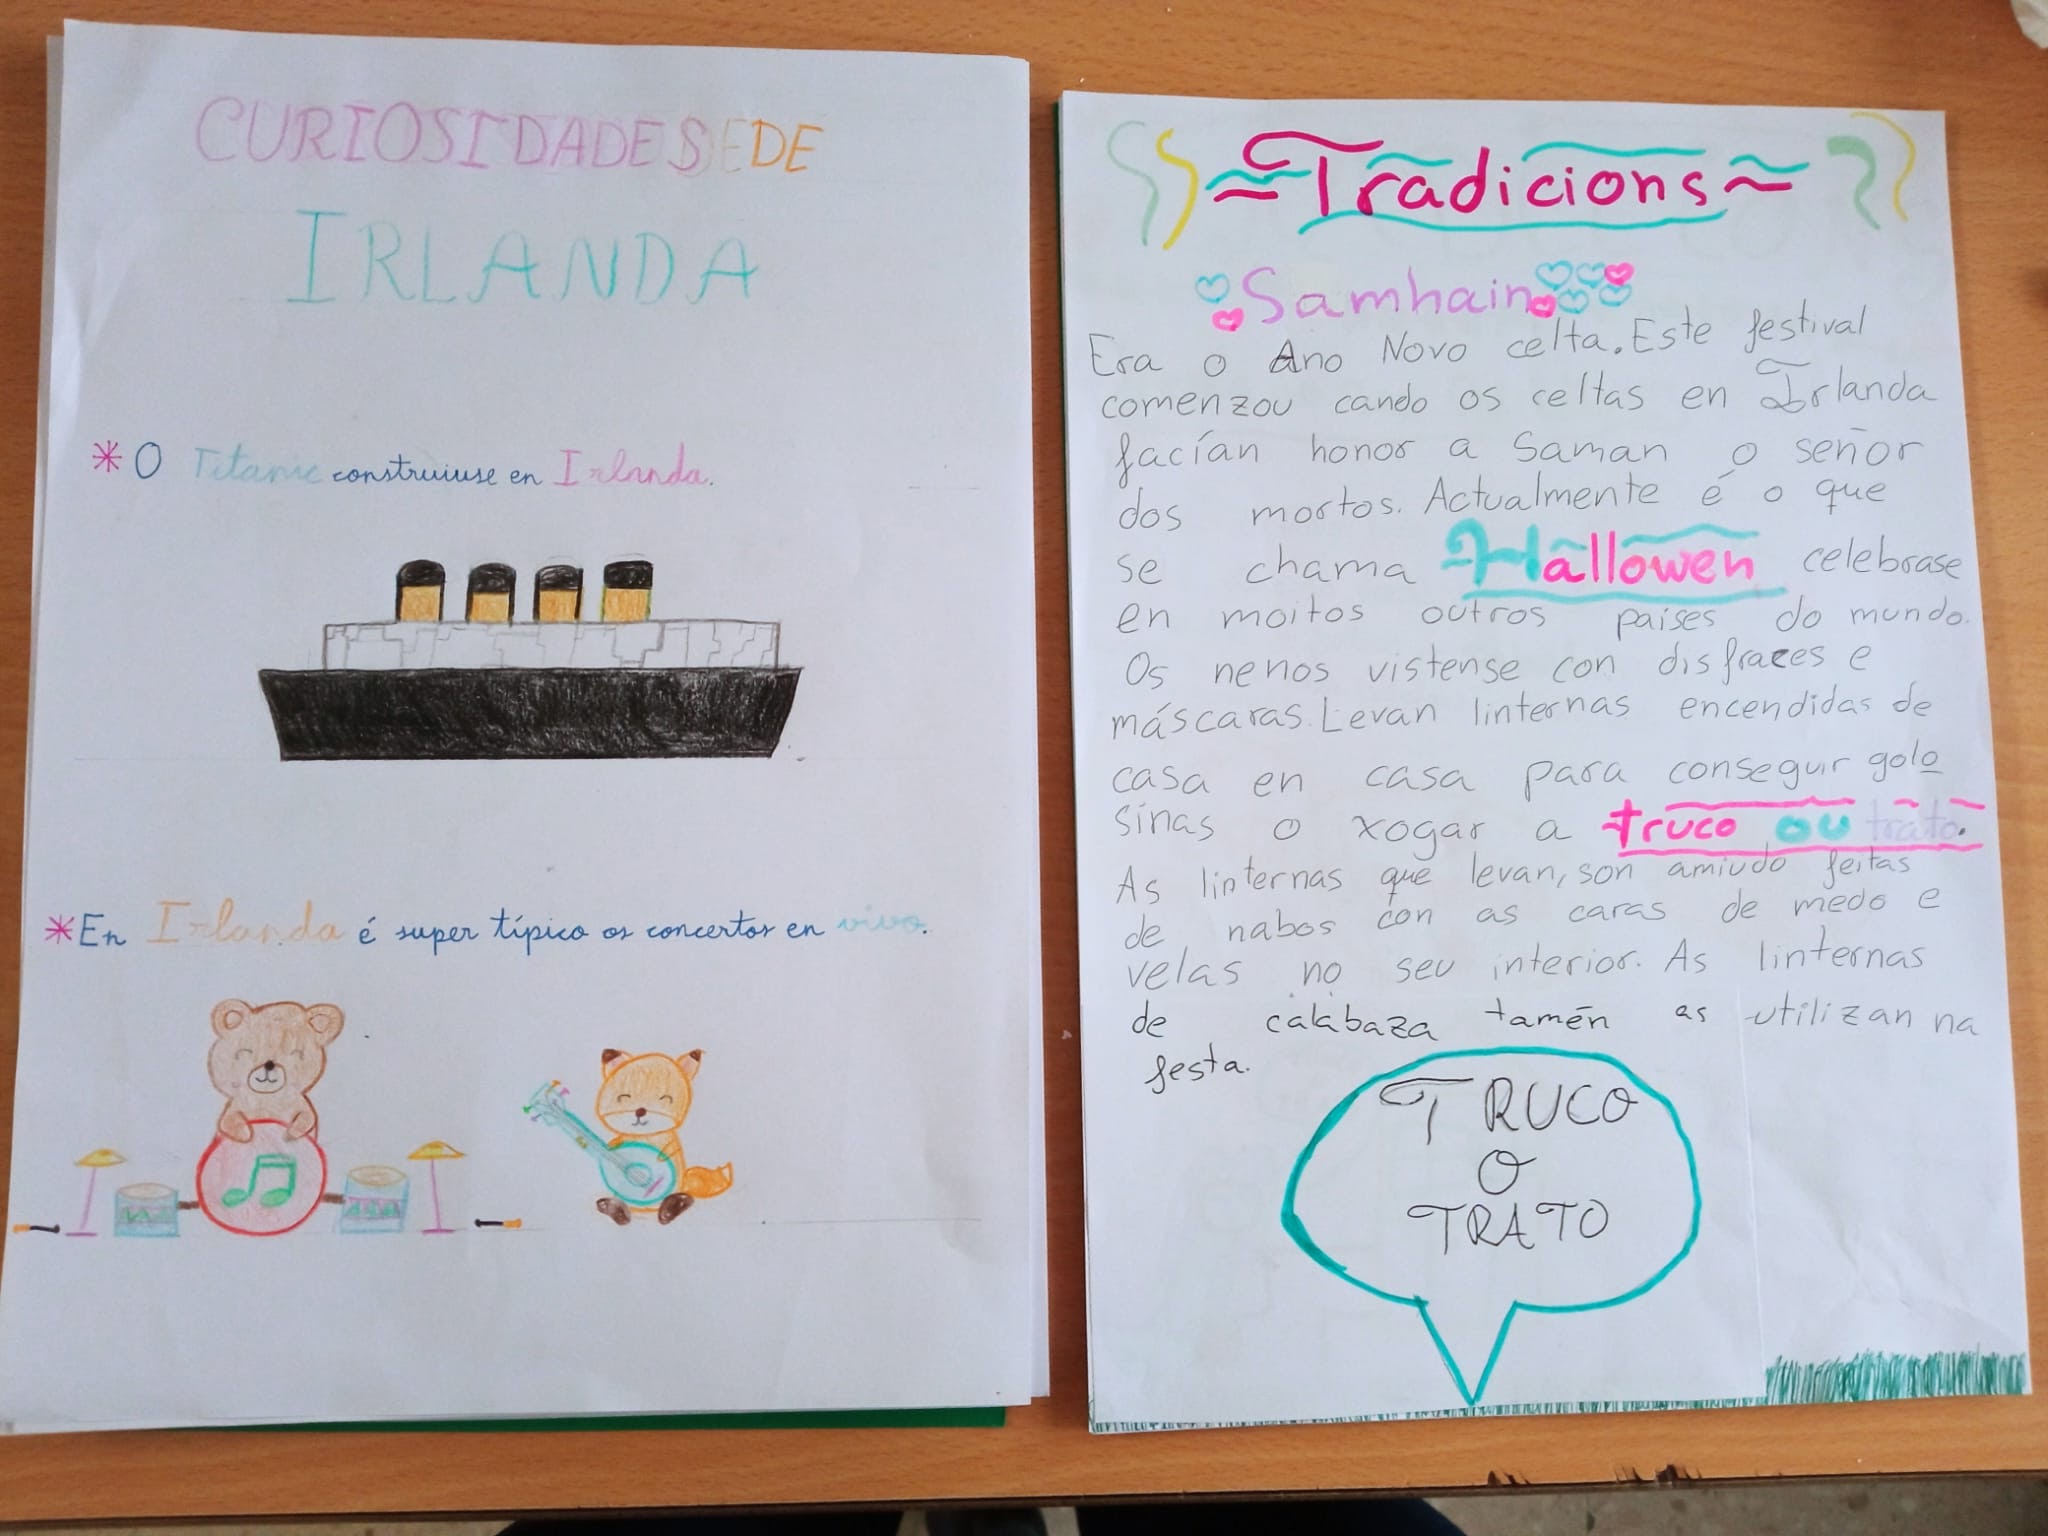 CURIOSIDADES DE
IRLANDA
* O Titanic construiuse en Irlanda.
* En Irlanda é super típico os concertos en vivo.
≈Tradicions~
Samhain
Era o Ano Novo celta. Este festival
comenzou cando os celtas en Irlanda
facían honor a Saman o señor
dos mortos. Actualmente é o que
se chama Hallowen celebrase
en moitos outros países do mundo.
Os nenos vistense con disfraces e
máscaras. Levan linternas encendidas de
casa en casa para conseguir golo
sinas o xogar a truco ou trato.
As linternas que levan, son amiudo feitas
de nabos con as caras de medo e
velas no seu interior. As linternas
de calabaza tamén as utilizan na
festa.
TRUCO
O
TRATO